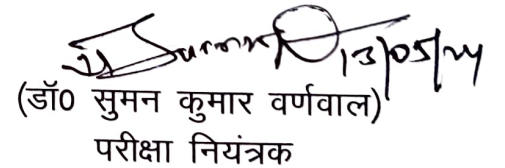 13/05/24
(डॉ0 सुमन कुमार वर्णवाल)
परीक्षा नियंत्रक